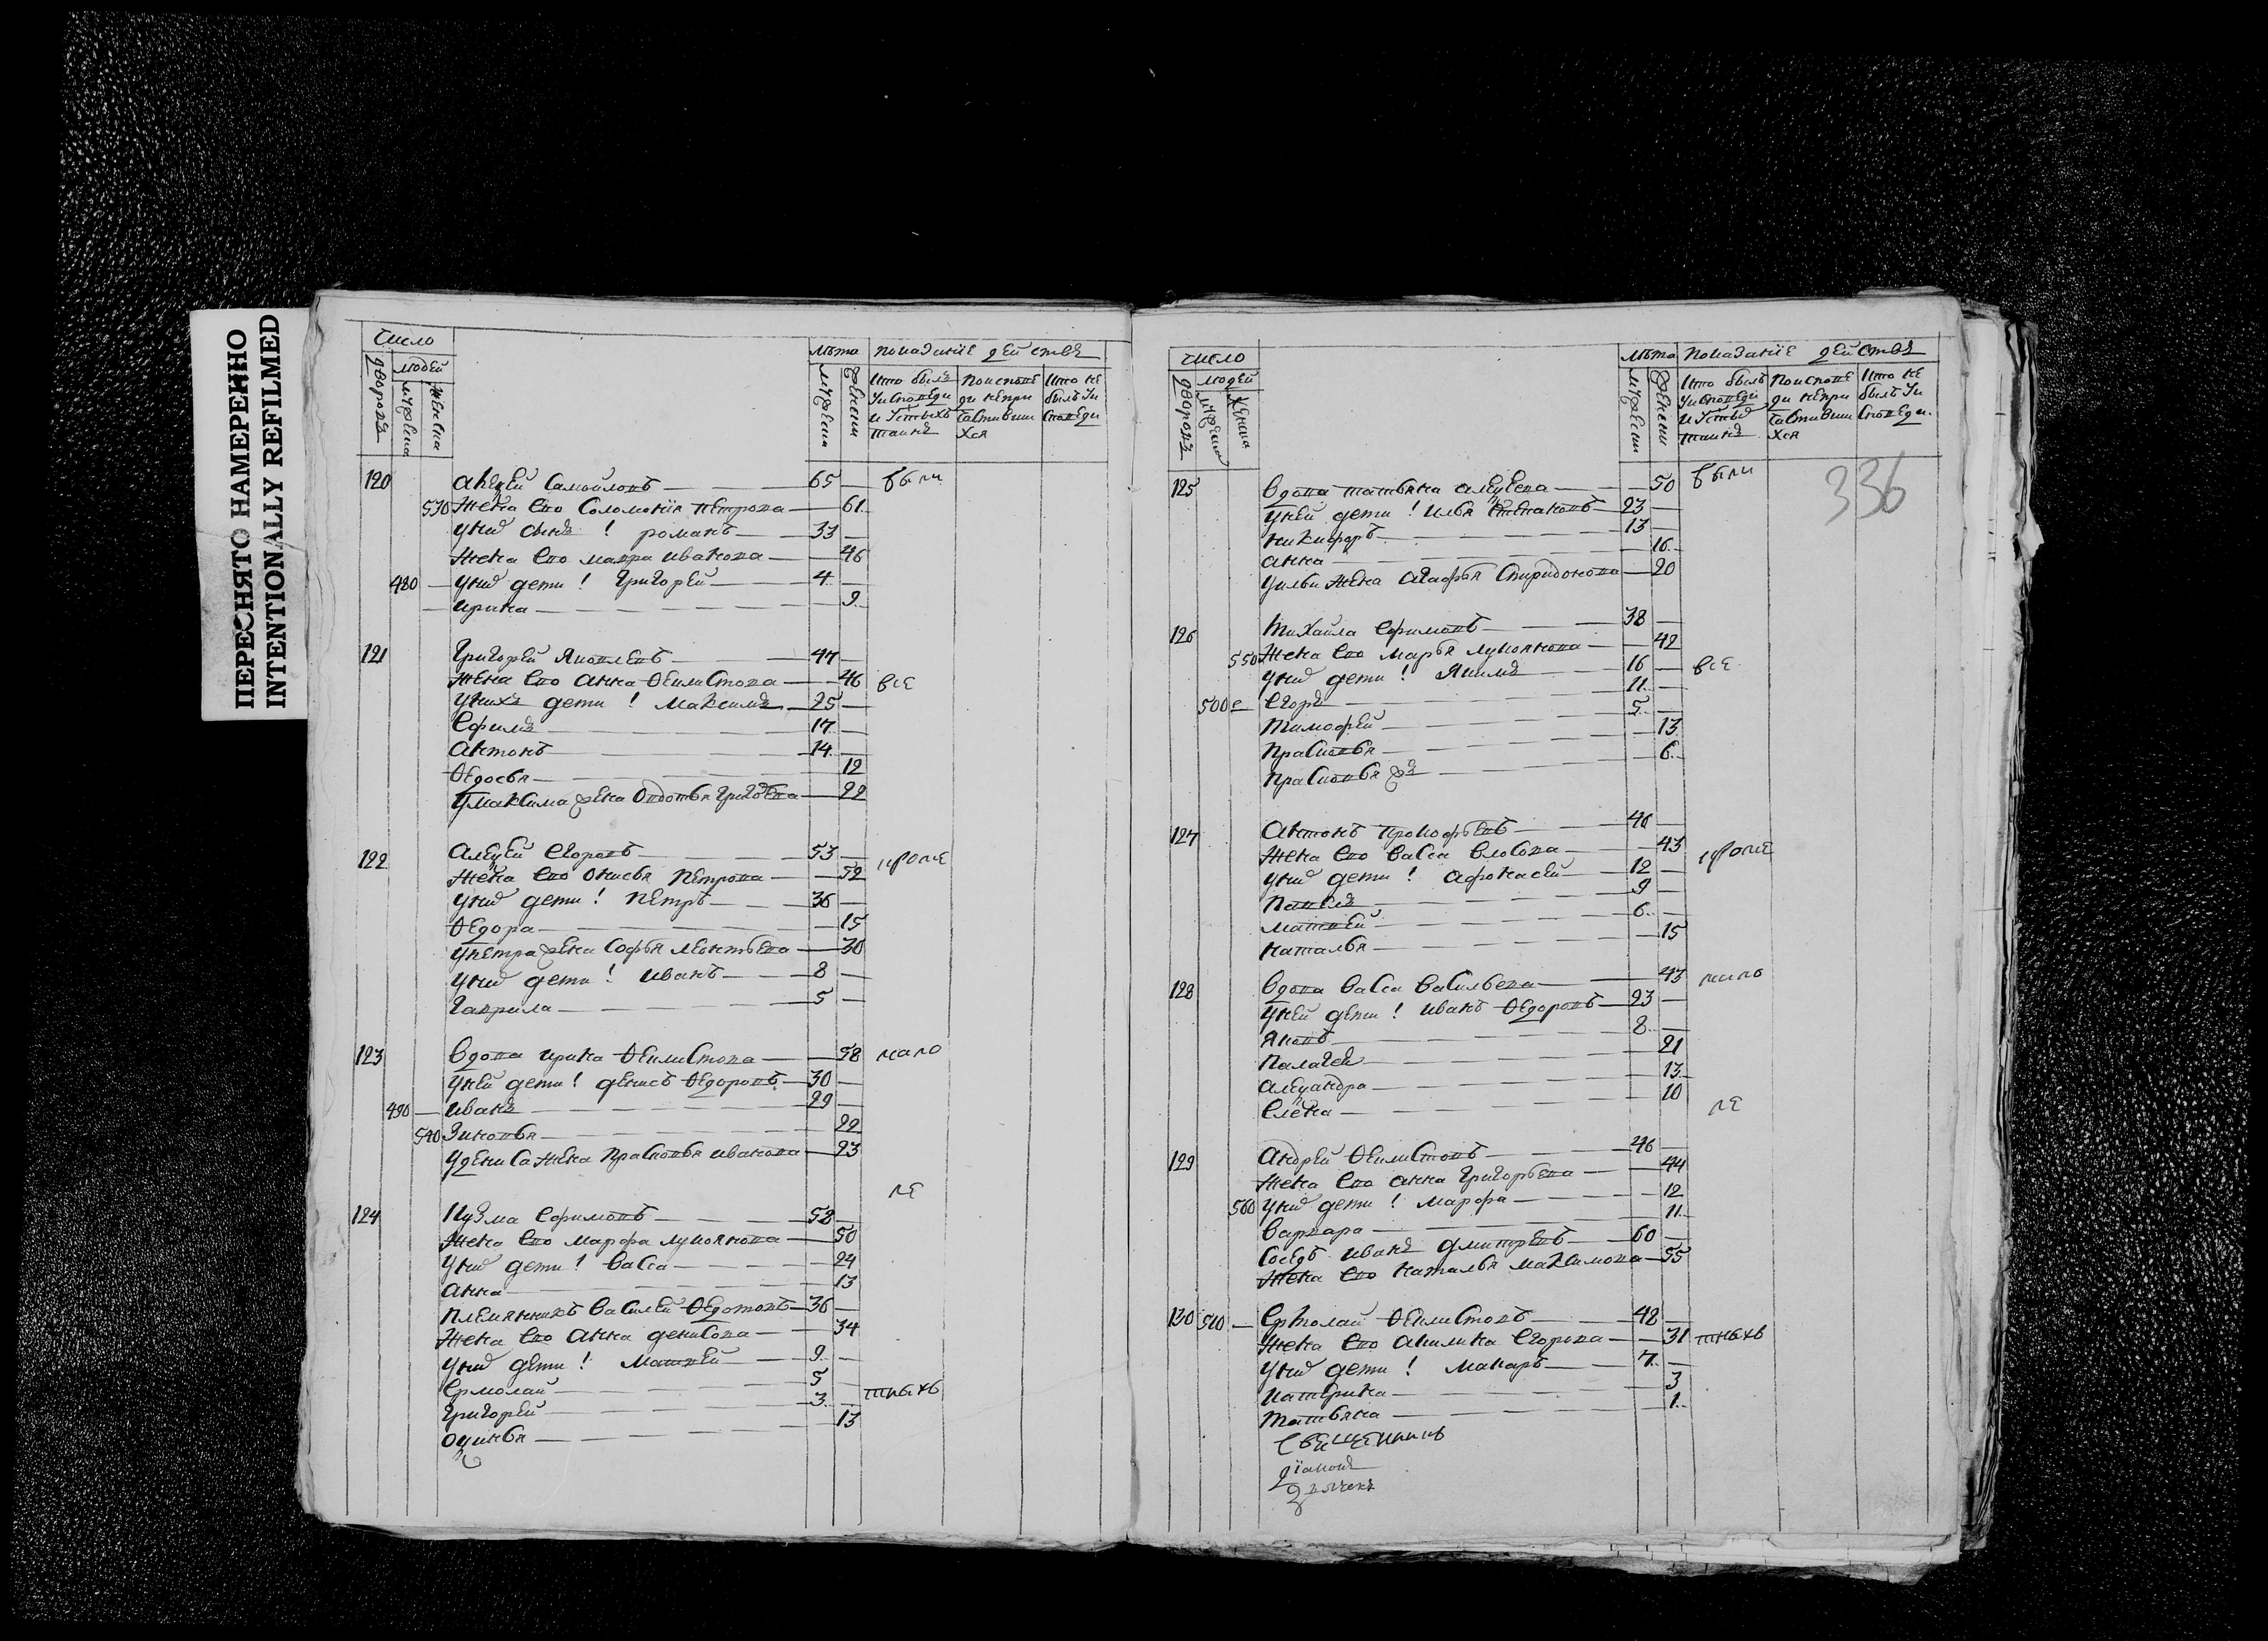 ПЕРЕСНЯТО НАМЕРЕННО
INTENTIONALLY REFILMED
число
дворовъ
людей
мужеска
женска
лѣта
мужеска
женска
показанїе действъ
кто былъ у исповеди и у стыхъ таинъ
по исповеди не причастившихся
кто не былъ у исповеди
120 Аѯѣй Самойловъ 65 были
530 жена ево Соломонїя петрова 61
у нихъ сынъ ! романъ 33
жена ево мавра иванова 46
480 у нихъ дети ! Григорей 4
ирина 9
121 Григорей Яковлевъ 47
жена ево анна Ѳеклистова 46 все
у нихъ дети ! максимъ 25
Ефимъ 17
антонъ 14
Ѳедосья 12
у максима жена Овдотья григорьева 22
122 алеѯей Егоровъ 53
жена ево Онисья петрова 52 кроме
у нихъ дети ! петръ 36
Ѳедора 15
у петра жена Софья леонтьева 30
у нихъ дети ! иванъ 8
Гаврила 5
123 вдова ирина Ѳеклистова 58 мало
у ней дети ! денисъ Ѳедоровъ 30
490 иванъ 29
540 Зиновья 22
у дениса жена прасковья иванова 23
ле
124 кузма Ефимовъ 58
жена ево марфа лукоянова 50
у нихъ дети ! васса 24
анна 13
племянникъ василей Ѳедотовъ 36
жена ево анна денисова 34
у нихъ дети ! матвей 9
Ермолай 5
Григорей 3 тныхъ
Оѯинья 13
336
число
дворовъ
людей
мужеска
женска
лѣта
мужеска
женска
показанїе действъ
кто былъ у исповеди и у стыхъ таинъ
по исповеди не причастившихся
кто не былъ у исповеди
125 вдова татьяна алеѯеева 50 были
у ней дети ! илья степановъ 23
никифоръ 13
анна 16
у ильи жена агафья Спиридонова 20
126 михаила Ефимовъ 38
550 жена ево марья лукоянова 42
у нихъ дети ! Якимъ 16 все
500 Егоръ 11
тимофей 5
прасковья 13
прасковья жъ 6
127 антонъ прокофьевъ 46
жена ево васса власова 43
у нихъ дети ! афонасей 12 кроме
павелъ 9
матвей 6
наталья 15
128 вдова васса васильева 43 мало
у ней дети ! иванъ Ѳедоровъ 23
Яковъ 8
палагея 21
алеѯандра 13
Елена 10
ле
129 андрей Ѳеклистовъ 46
жена ево анна григорьева 44
560 у нихъ дети ! марфа 12
варвара 11
Соседъ иванъ дмитревъ 60
жена ево наталья максимова 55
130 510 Ермолай Ѳеклистовъ 48
жена ево акилина Егорова 31 тныхъ
у нихъ дети ! макаръ 7
катерина 3
татьяна 1
Свещенникъ
дїаконъ
дьячекъ